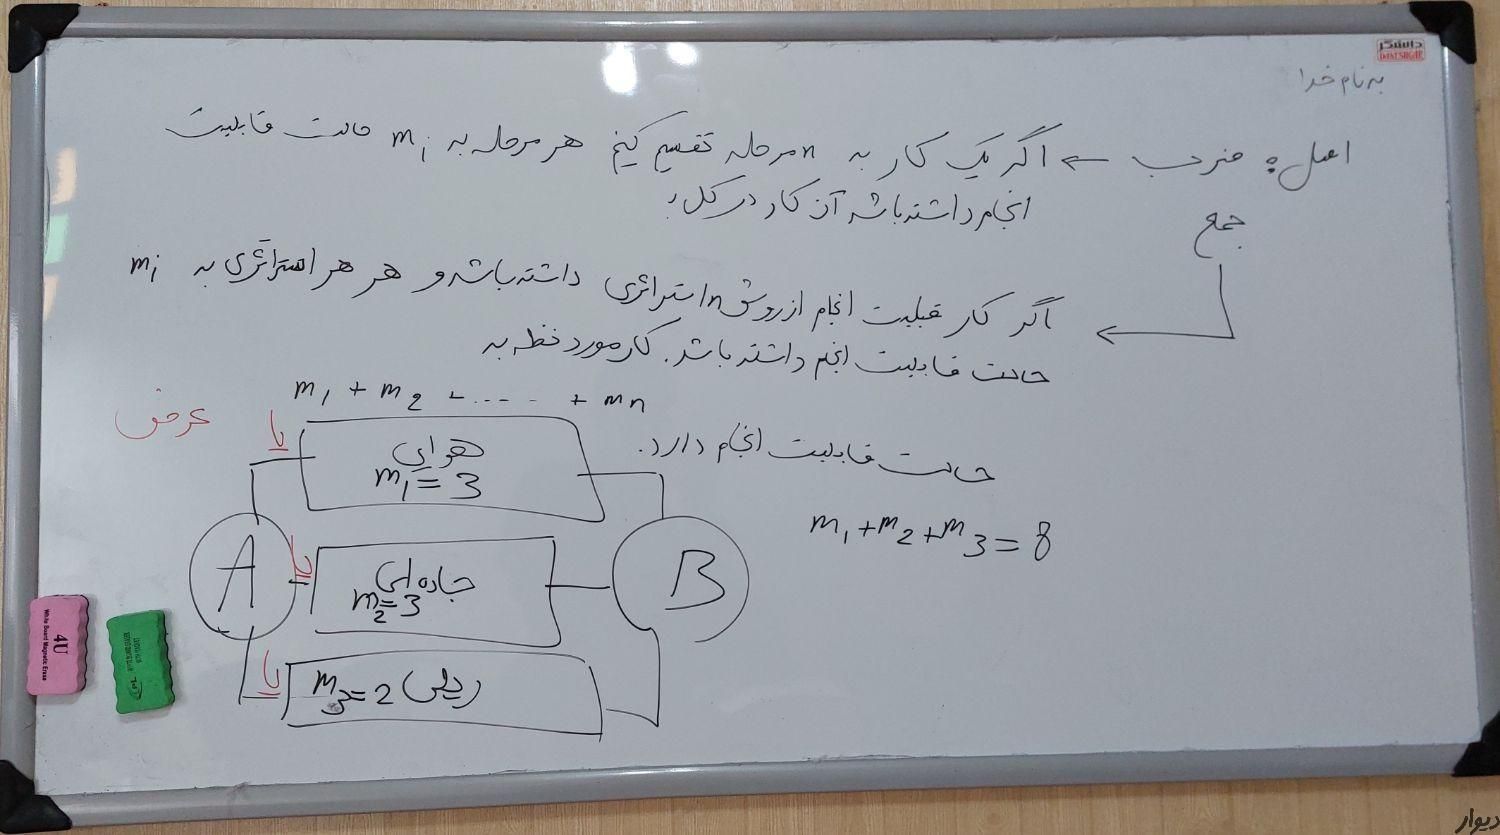 دانشگر
DANESHGAR
به نام خدا
اصل: ضرب ← اگر یک کار به n مرحله تقسیم کنیم هر مرحله به mi حالت قابلیت
انجام داشته باشد آن کار در کل:
جمع
اگر کار قبلیت انجام از روش n استراتژی داشته باشد و هر هر استراتژی به mi
حالت قابلیت انجم داشته باشد. کار مورد نظر به
m1 + m2 + ..... + mn
حالت قابلیت انجام دارد.
m1+m2+m3=8
عرضی
یا
هوایی
m1=3
A
یا
جاده ای
m2=3
B
یا
ریلی m3=2
4U
White Board Magnetic Erase
دیوار